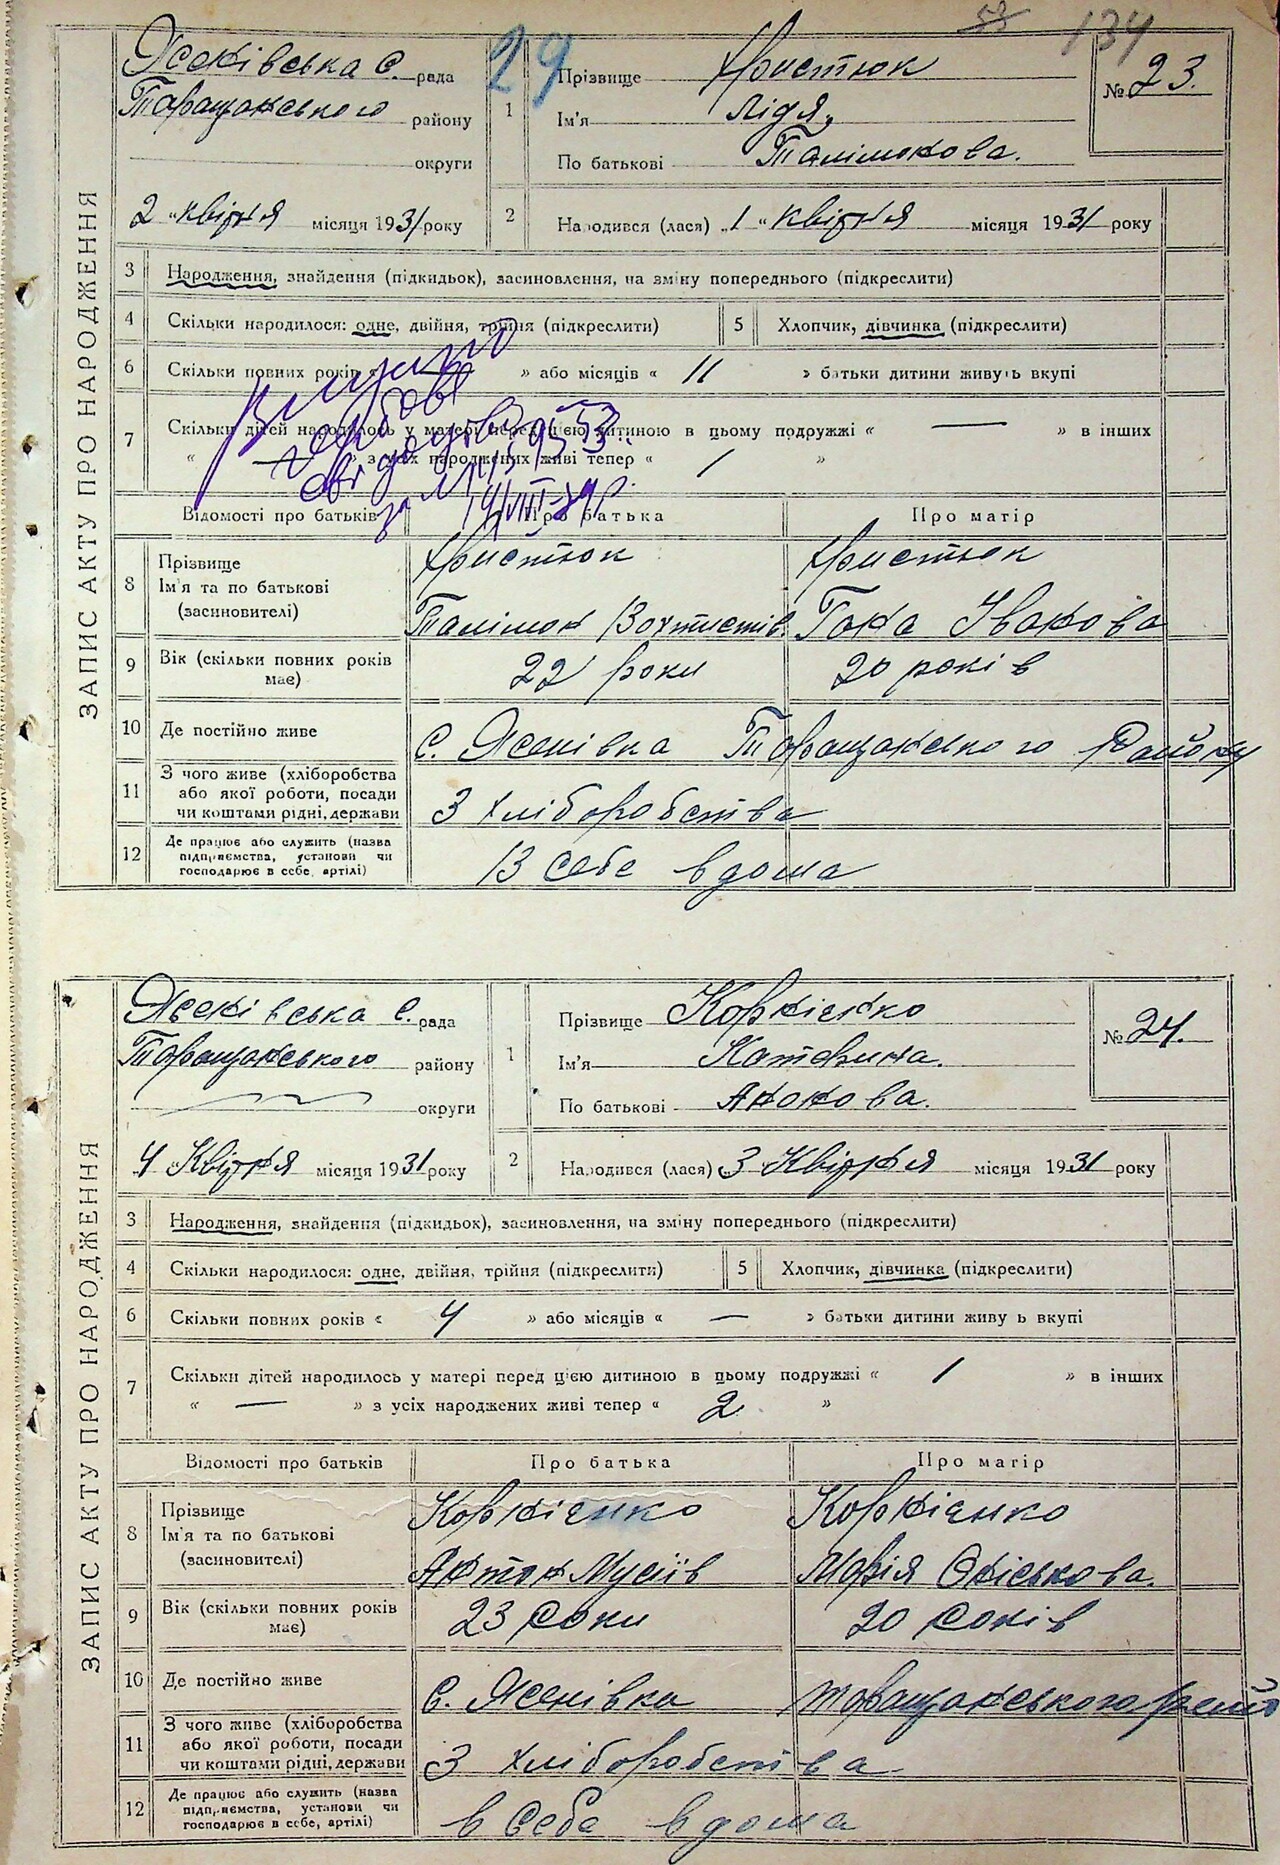 58 134
ЗАПИС АКТУ ПРО НАРОДЖЕННЯ
Ясенівська с. рада
Таращанського району
округи
29
1 Прізвище Христюк
Ім'я Лідя,
По батькові Талімонова.
№ 23.
2 „ квітня місяця 1931 року
2 Народився (лася) „1 „ квітня місяця 1931 року
3 Народження, знайдення (підкидьок), засиновлення, на зміну попереднього (підкреслити)
4 Скільки народилося: одне, двійня, трійня (підкреслити) 5 Хлопчик, дівчинка (підкреслити)
6 Скільки повних років « » або місяців « 11 » батьки дитини живуть вкупі
7 Скільки дітей народилось у матері перед цією дитиною в цьому подружжі « — » в інших
« — » з усіх народжених живі тепер « 1 »
Відомості про батьків Про батька Про матір
8 Прізвище Христюк Христюк
Ім'я та по батькові
(засиновителі) Талімон Вохтистів. Гана Іванова
9 Вік (скільки повних років має) 22 роки 20 років
10 Де постійно живе с. Ясенівка Таращанського Району
11 З чого живе (хліборобства або якої роботи, посади чи коштами рідні, держави З хліборобства
12 Де працює або служить (назва підприємства, установи чи господарює в себе, артілі) В себе вдома
ЗАПИС АКТУ ПРО НАРОДЖЕННЯ
Ясенівська с. рада
Таращанського району
округи
1 Прізвище Корнієнко
Ім'я Катерина.
По батькові Антонова.
№ 24.
4 Квітня місяця 1931 року
2 Народився (лася) „3 Квітня місяця 1931 року
3 Народження, знайдення (підкидьок), засиновлення, на зміну попереднього (підкреслити)
4 Скільки народилося: одне, двійня, трійня (підкреслити) 5 Хлопчик, дівчинка (підкреслити)
6 Скільки повних років « 4 » або місяців « — » батьки дитини живу ь вкупі
7 Скільки дітей народилось у матері перед цією дитиною в цьому подружжі « 1 » в інших
« — » з усіх народжених живі тепер « 2 »
Відомості про батьків Про батька Про матір
8 Прізвище Корнієнко Корнієнко
Ім'я та по батькові
(засиновителі) Антон Мусіїв Марія Оніськова.
9 Вік (скільки повних років має) 23 роки 20 років
10 Де постійно живе с. Ясенівка Таращанського
11 З чого живе (хліборобства або якої роботи, посади чи коштами рідні, держави З хліборобства
12 Де працює або служить (назва підприємства, установи чи господарює в себе, артілі) в себе вдома